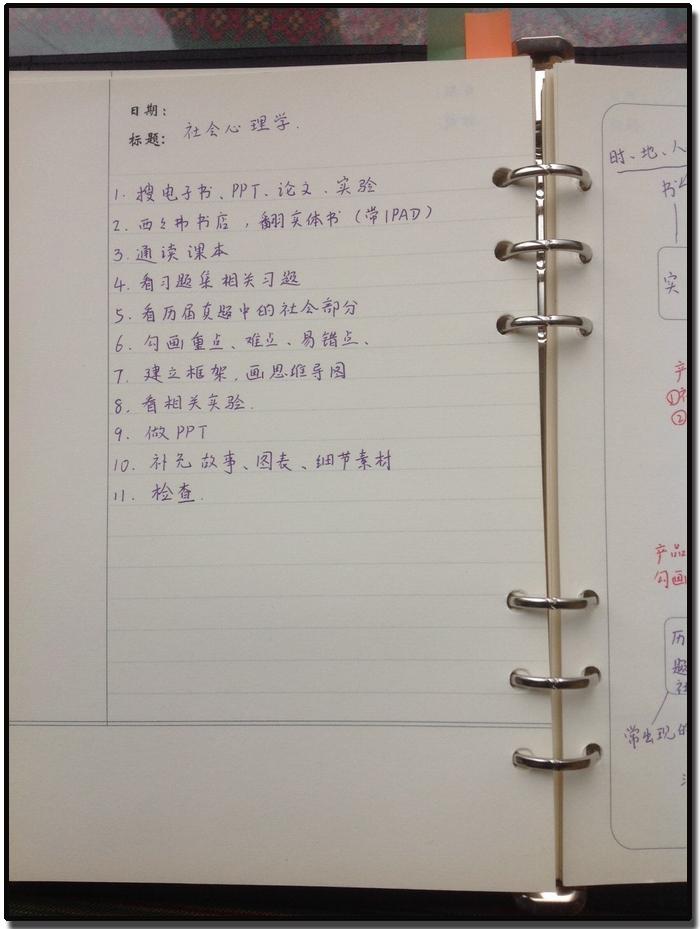 日期：
标题： 社会心理学.
1. 搜电子书、PPT、论文、实验
2. 西西弗书店，翻实体书（带IPAD）
3. 通读课本
4. 看习题集相关习题
5. 看历届真题中的社会部分
6. 勾画重点、难点、易错点、
7. 建立框架，画思维导图
8. 看相关实验.
9. 做PPT
10. 补充故事、图表、细节素材
11. 检查.
时、地、人
书
实
产
①
②
产品
勾画
历
题
社
常出现的